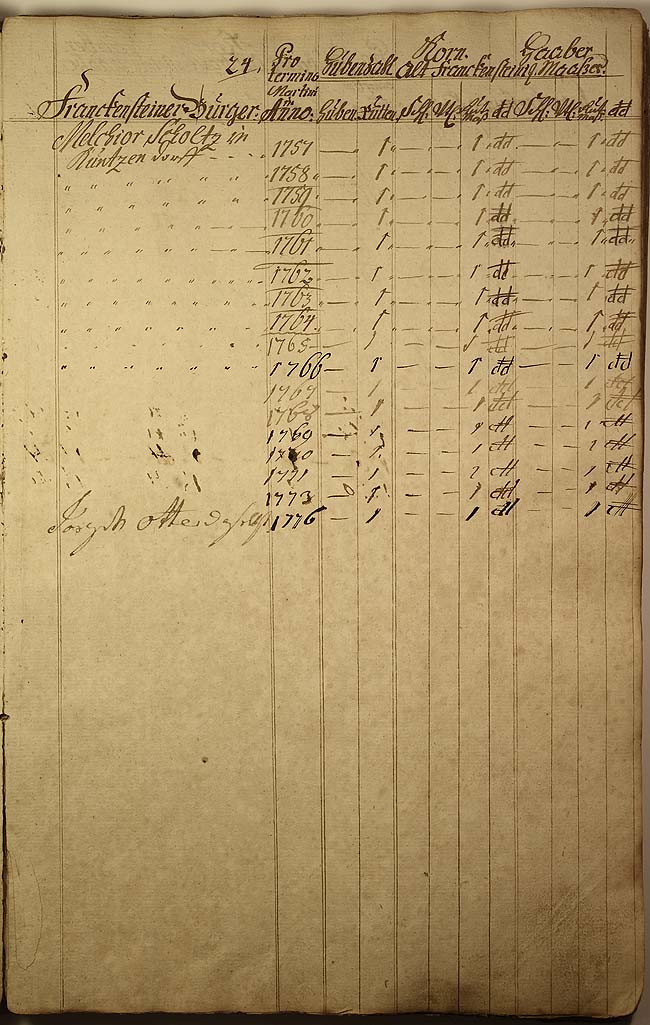 24. Pro Hubenzahl Korn. Haaber
termino Alt Franckensteinl. Maaßer.
Martini
Franckensteiner Bürger. Anno. Huben. Rutten. Schl. Vtl. dd Schl. Vtl. dd
Melchior Scholtz in
Küntzendorff - - - - 1757 — 1 — — 1 dd — — 1 dd
" " " " " " " 1758 — 1 — — 1 dd — — 1 dd
" " " " " " " 1759 — 1 — — 1 dd — — 1 dd
" " " " " " " 1760 — 1 — — 1 dd — — 1 dd
" " " " " " " 1761 — 1 — — 1 dd — — 1 dd
" " " " " " " 1762 — 1 — — 1 dd — — 1 dd
" " " " " " " 1763 — 1 — — 1 dd — — 1 dd
" " " " " " " 1764 — 1 — — 1 dd — — 1 dd
" " " " " " " 1765 — 1 — — 1 dd — — 1 dd
" " " " " " " 1766 — 1 — — 1 dd — — 1 dd
1767 — 1 — — 1 dd — — 1 dd
" " " 1768 — 1 — — 1 dd — — 1 dd
" " " 1769 — 1 — — 1 dd — — 1 dd
" " " 1770 — 1 — — 1 dd — — 1 dd
" " " 1771 — 1 — — 1 dd — — 1 dd
1773 — 1 — — 1 dd — — 1 dd
Joseph 1776 — 1 — — 1 dd — — 1 dd